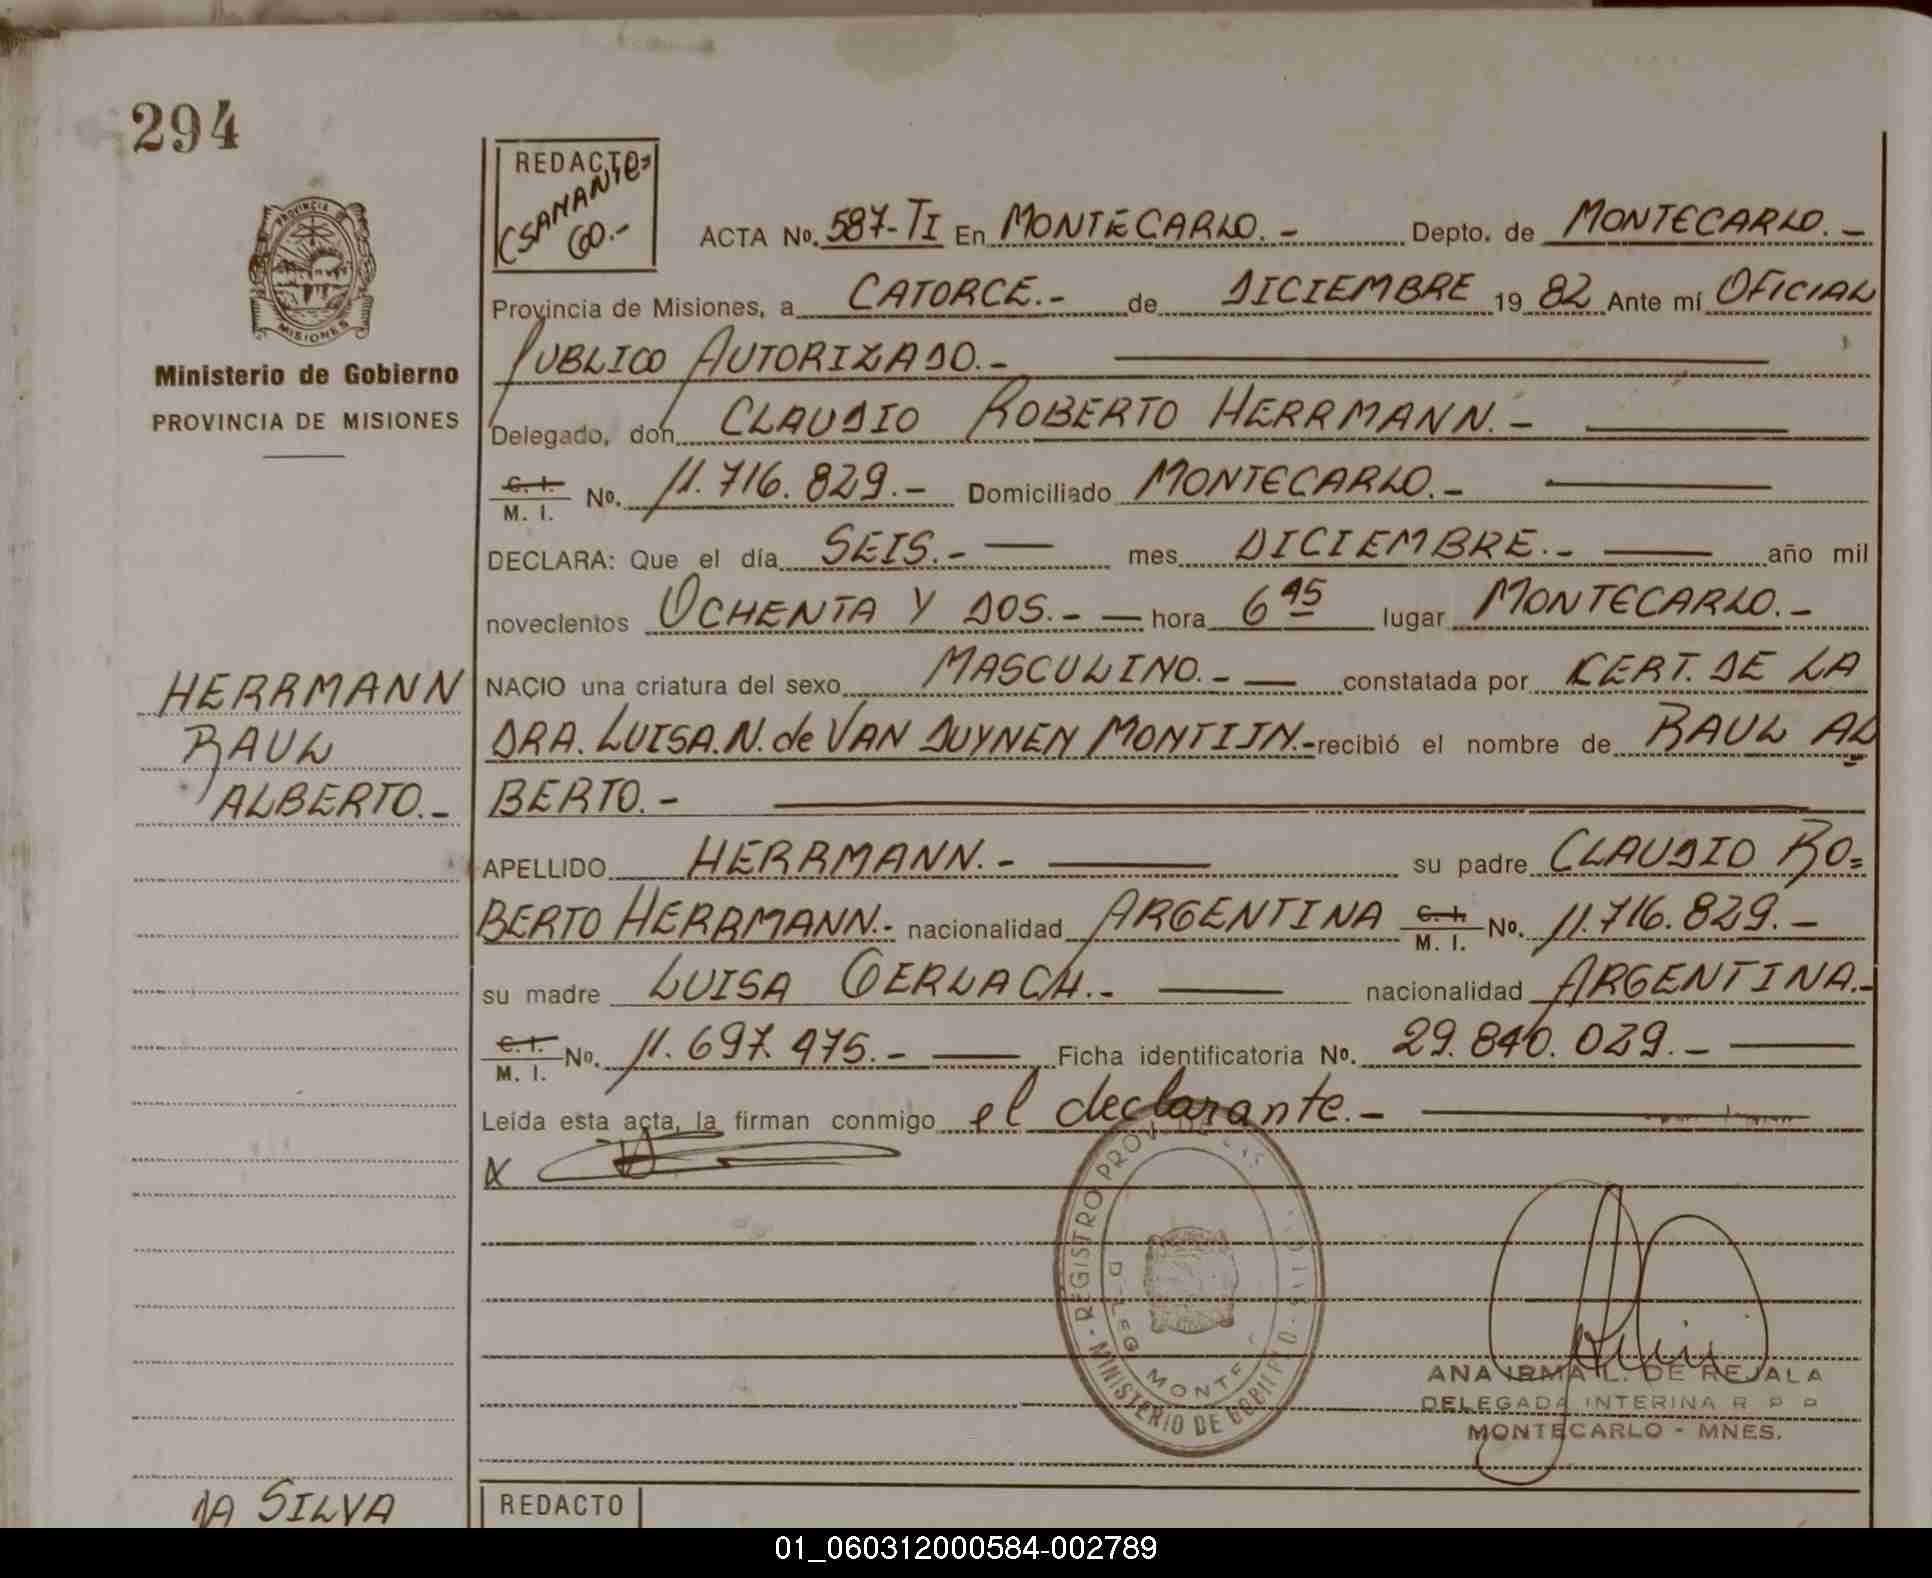 294
REDACTO
ACTA No. 587-TI En MONTECARLO.- Depto. de MONTECARLO.-
Provincia de Misiones, a CATORCE.- de DICIEMBRE 19 82 Ante mí OFICIAL
PUBLICO AUTORIZADO.-
Ministerio de Gobierno
PROVINCIA DE MISIONES
PROVINCIA
MISIONES
Delegado, don CLAUDIO ROBERTO HERRMANN.-
C. I.
M. I. No. 11.716.829.- Domiciliado MONTECARLO.-
DECLARA: Que el día SEIS.- mes DICIEMBRE.- año mil
novecientos OCHENTA Y DOS.- hora 6 45 lugar MONTECARLO.-
HERRMANN
RAUL
ALBERTO.-
NACIO una criatura del sexo MASCULINO.- constatada por CERT. DE LA
DRA. LUISA. N. de VAN DUYNEN MONTIJN.- recibió el nombre de RAUL AL
BERTO.-
APELLIDO HERRMANN.- su padre CLAUDIO RO=
BERTO HERRMANN.- nacionalidad ARGENTINA C. I. M. I. No. 11.716.829.-
su madre LUISA GERLACH.- nacionalidad ARGENTINA.-
C. I.
M. I. No. 11.697.475.- Ficha identificatoria No. 29.840.029.-
Leída esta acta, la firman conmigo el declarante.-
REGISTRO PROV. DE LAS
MINISTERIO DE GOBIERNO
ANA IRMA L. DE REJALA
DELEGADA INTERINA R P P
MONTECARLO - MNES.
DA SILVA
REDACTO
01_060312000584-002789